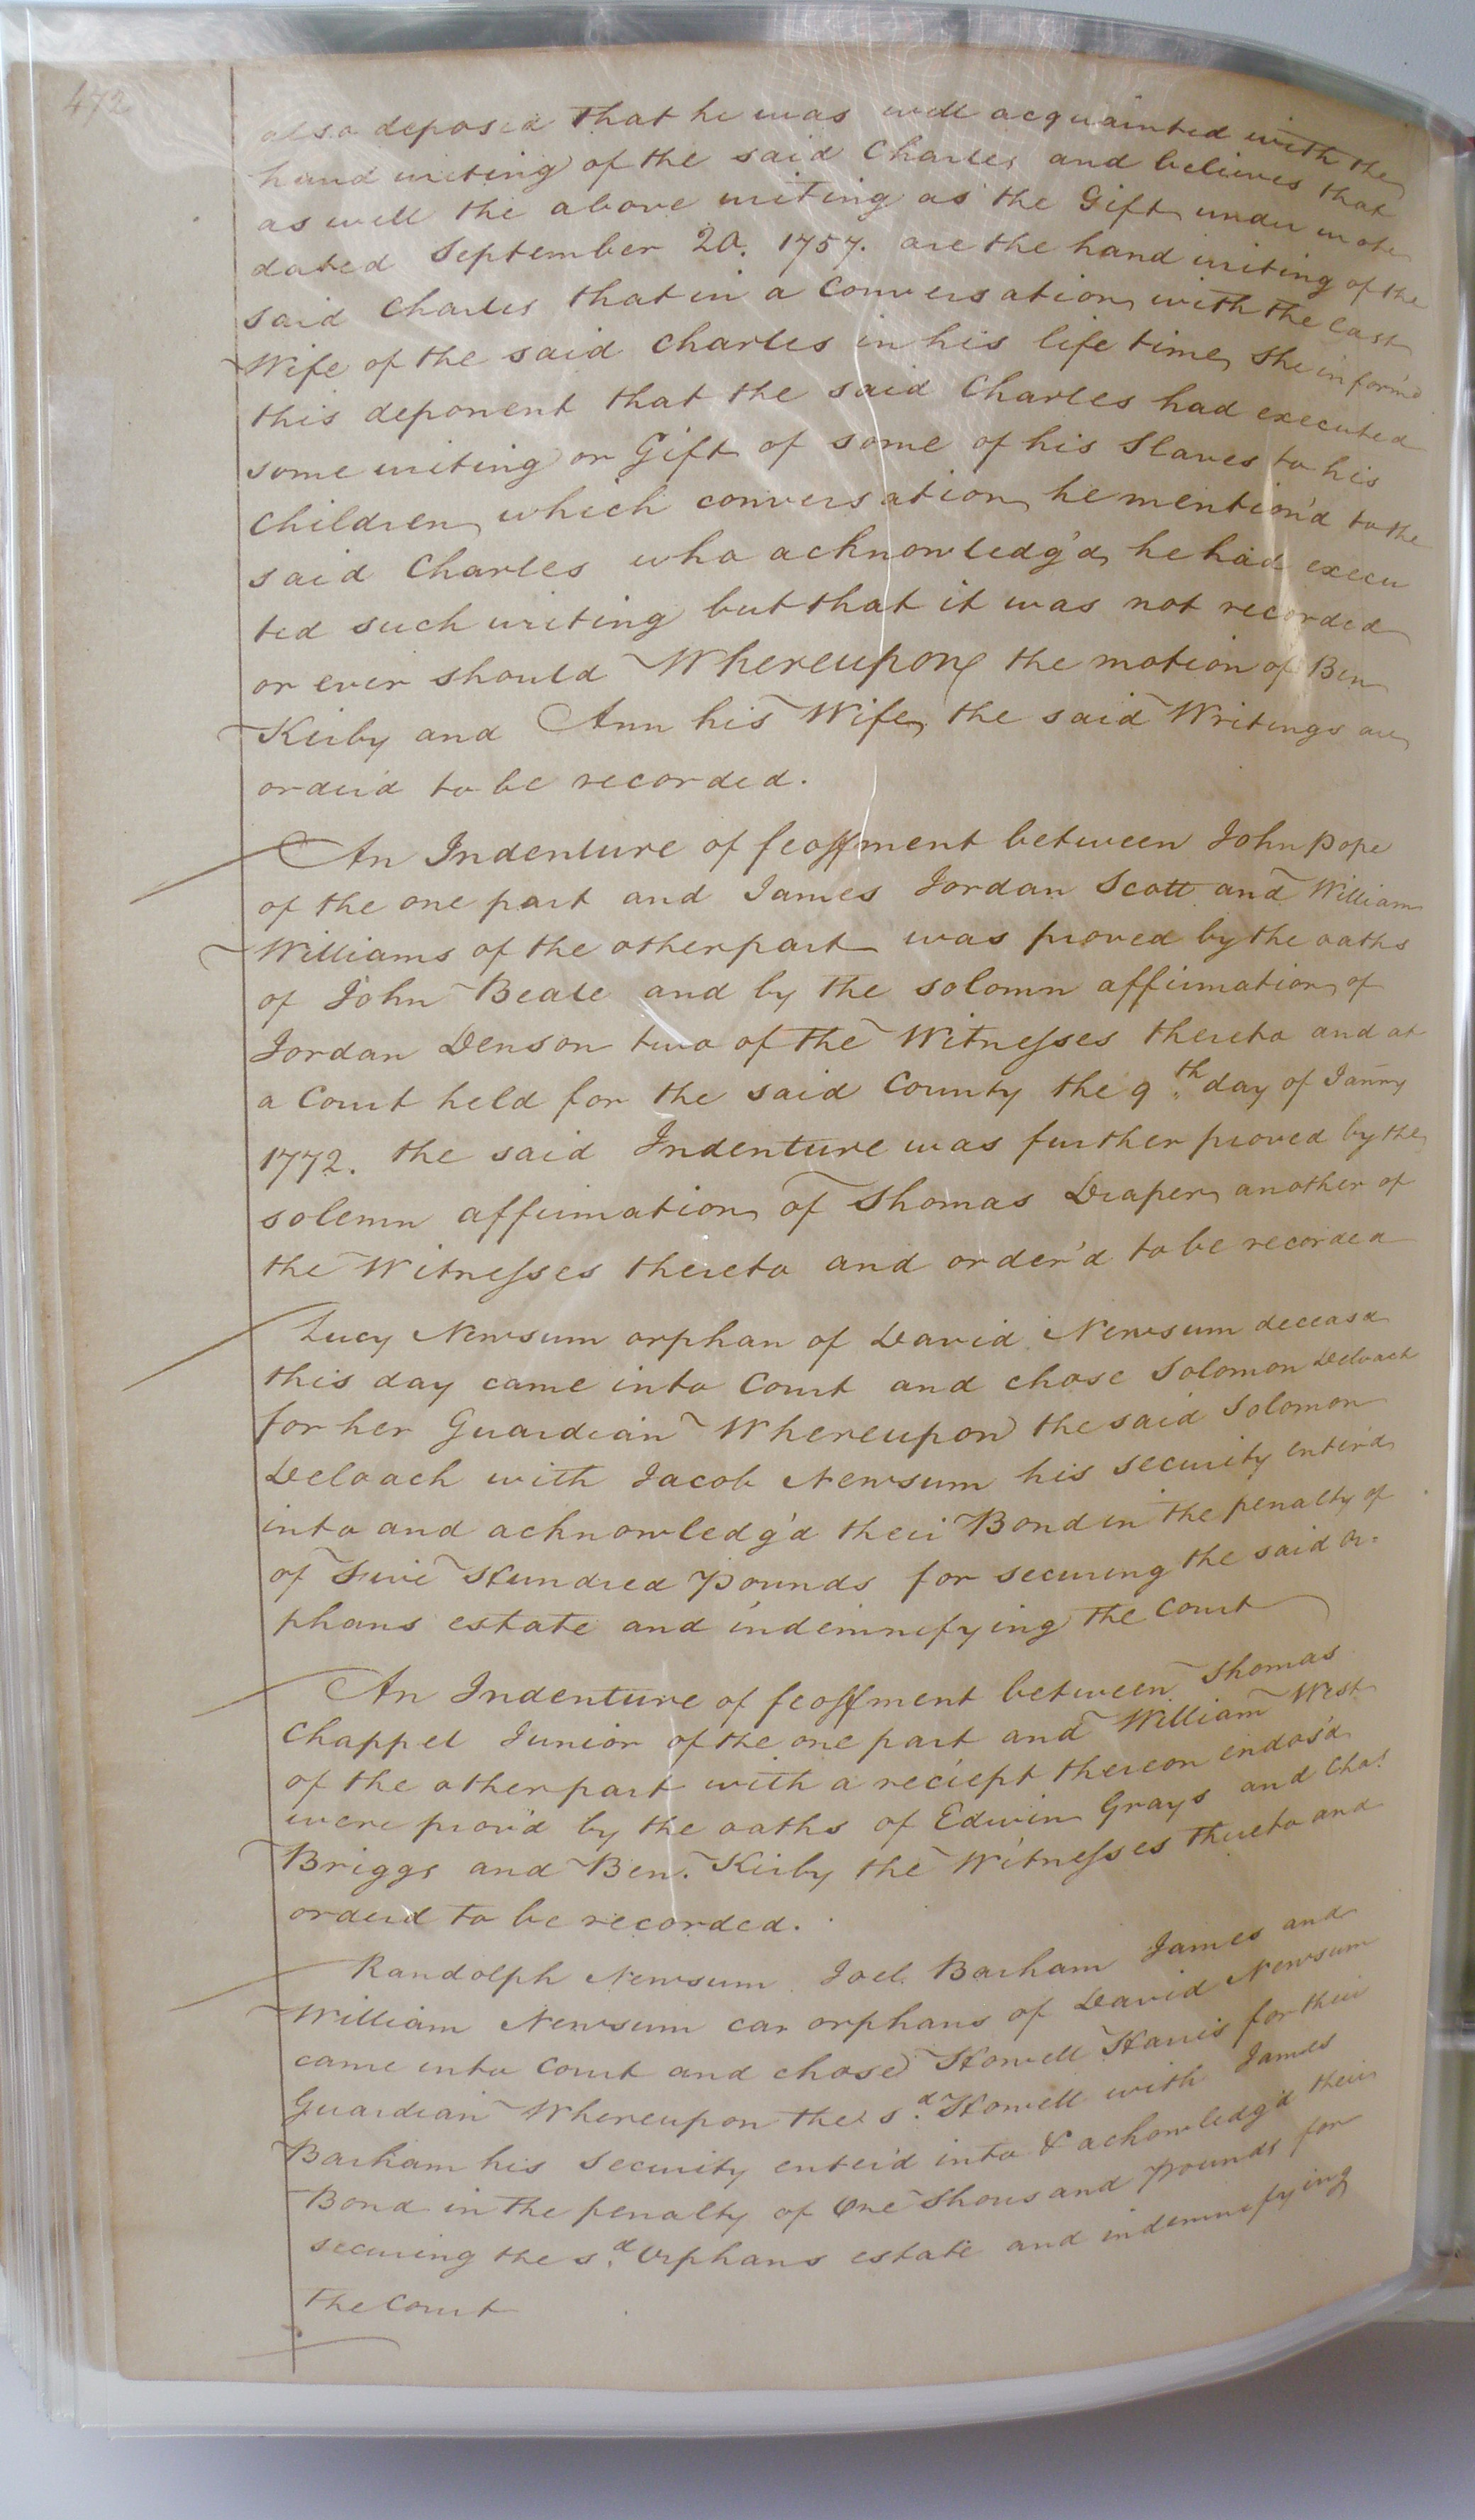 472
also deposed that he was well acquainted with the
hand writing of the said Charles and believes that
as well the above writing as the Gift under wrote
dated September 20. 1757. are the hand writing of the
said Charles that in a Conversation with the last
Wife of the said Charles in his life time she inform'd
this deponent that the said Charles had executed
some writing or Gift of some of his Slaves to his
Children which conversation he mention'd to the
said Charles who acknowledg'd he had execu
ted such writing but that it was not recorded
or ever should Whereupon the motion of Ben
Kirby and Ann his Wife the said Writings are
order'd to be recorded.
An Indenture of feoffment between John Pope
of the one part and James Jordan Scott and William
Williams of the other part was proved by the oaths
of John Beale and by the solomn affirmation of
Jordan Denson two of the Witnesses thereto and at
a Court held for the said County the 9.th day of Janry
1772. the said Indenture was further proved by the
solemn affirmation of Thomas Draper another of
the Witnesses thereto and order'd to be recorded
Lucy Newsum orphan of David Newsum deceasd
this day came into Court and chose Solomon Deloach
for her Guardian Whereupon the said Solomon
Deloach with Jacob Newsum his security enter'd
into and acknowledg'd their Bond in the penalty of
of Five Hundred Pounds for securing the said or-
phans estate and indemnifying the Court
An Indenture of feoffment between Thomas
Chappel Junior of the one part and William West
of the other part with a reciept thereon endos'd
were prov'd by the oaths of Edwin Grays and Chas.
Briggs and Ben. Kirby the Witnesses thereto and
orderd to be recorded.
Randolph Newsum Joel Barham James and
William Newsum orphans of David Newsum
came into Court and chose Howell Harris for their
Guardian Whereupon the s.d Howell with James
Barham his Security enter'd into & acknowledg'd their
Bond in the penalty of One Thousand Pounds for
securing the s.d Orphans estate and indemnifying
the Court